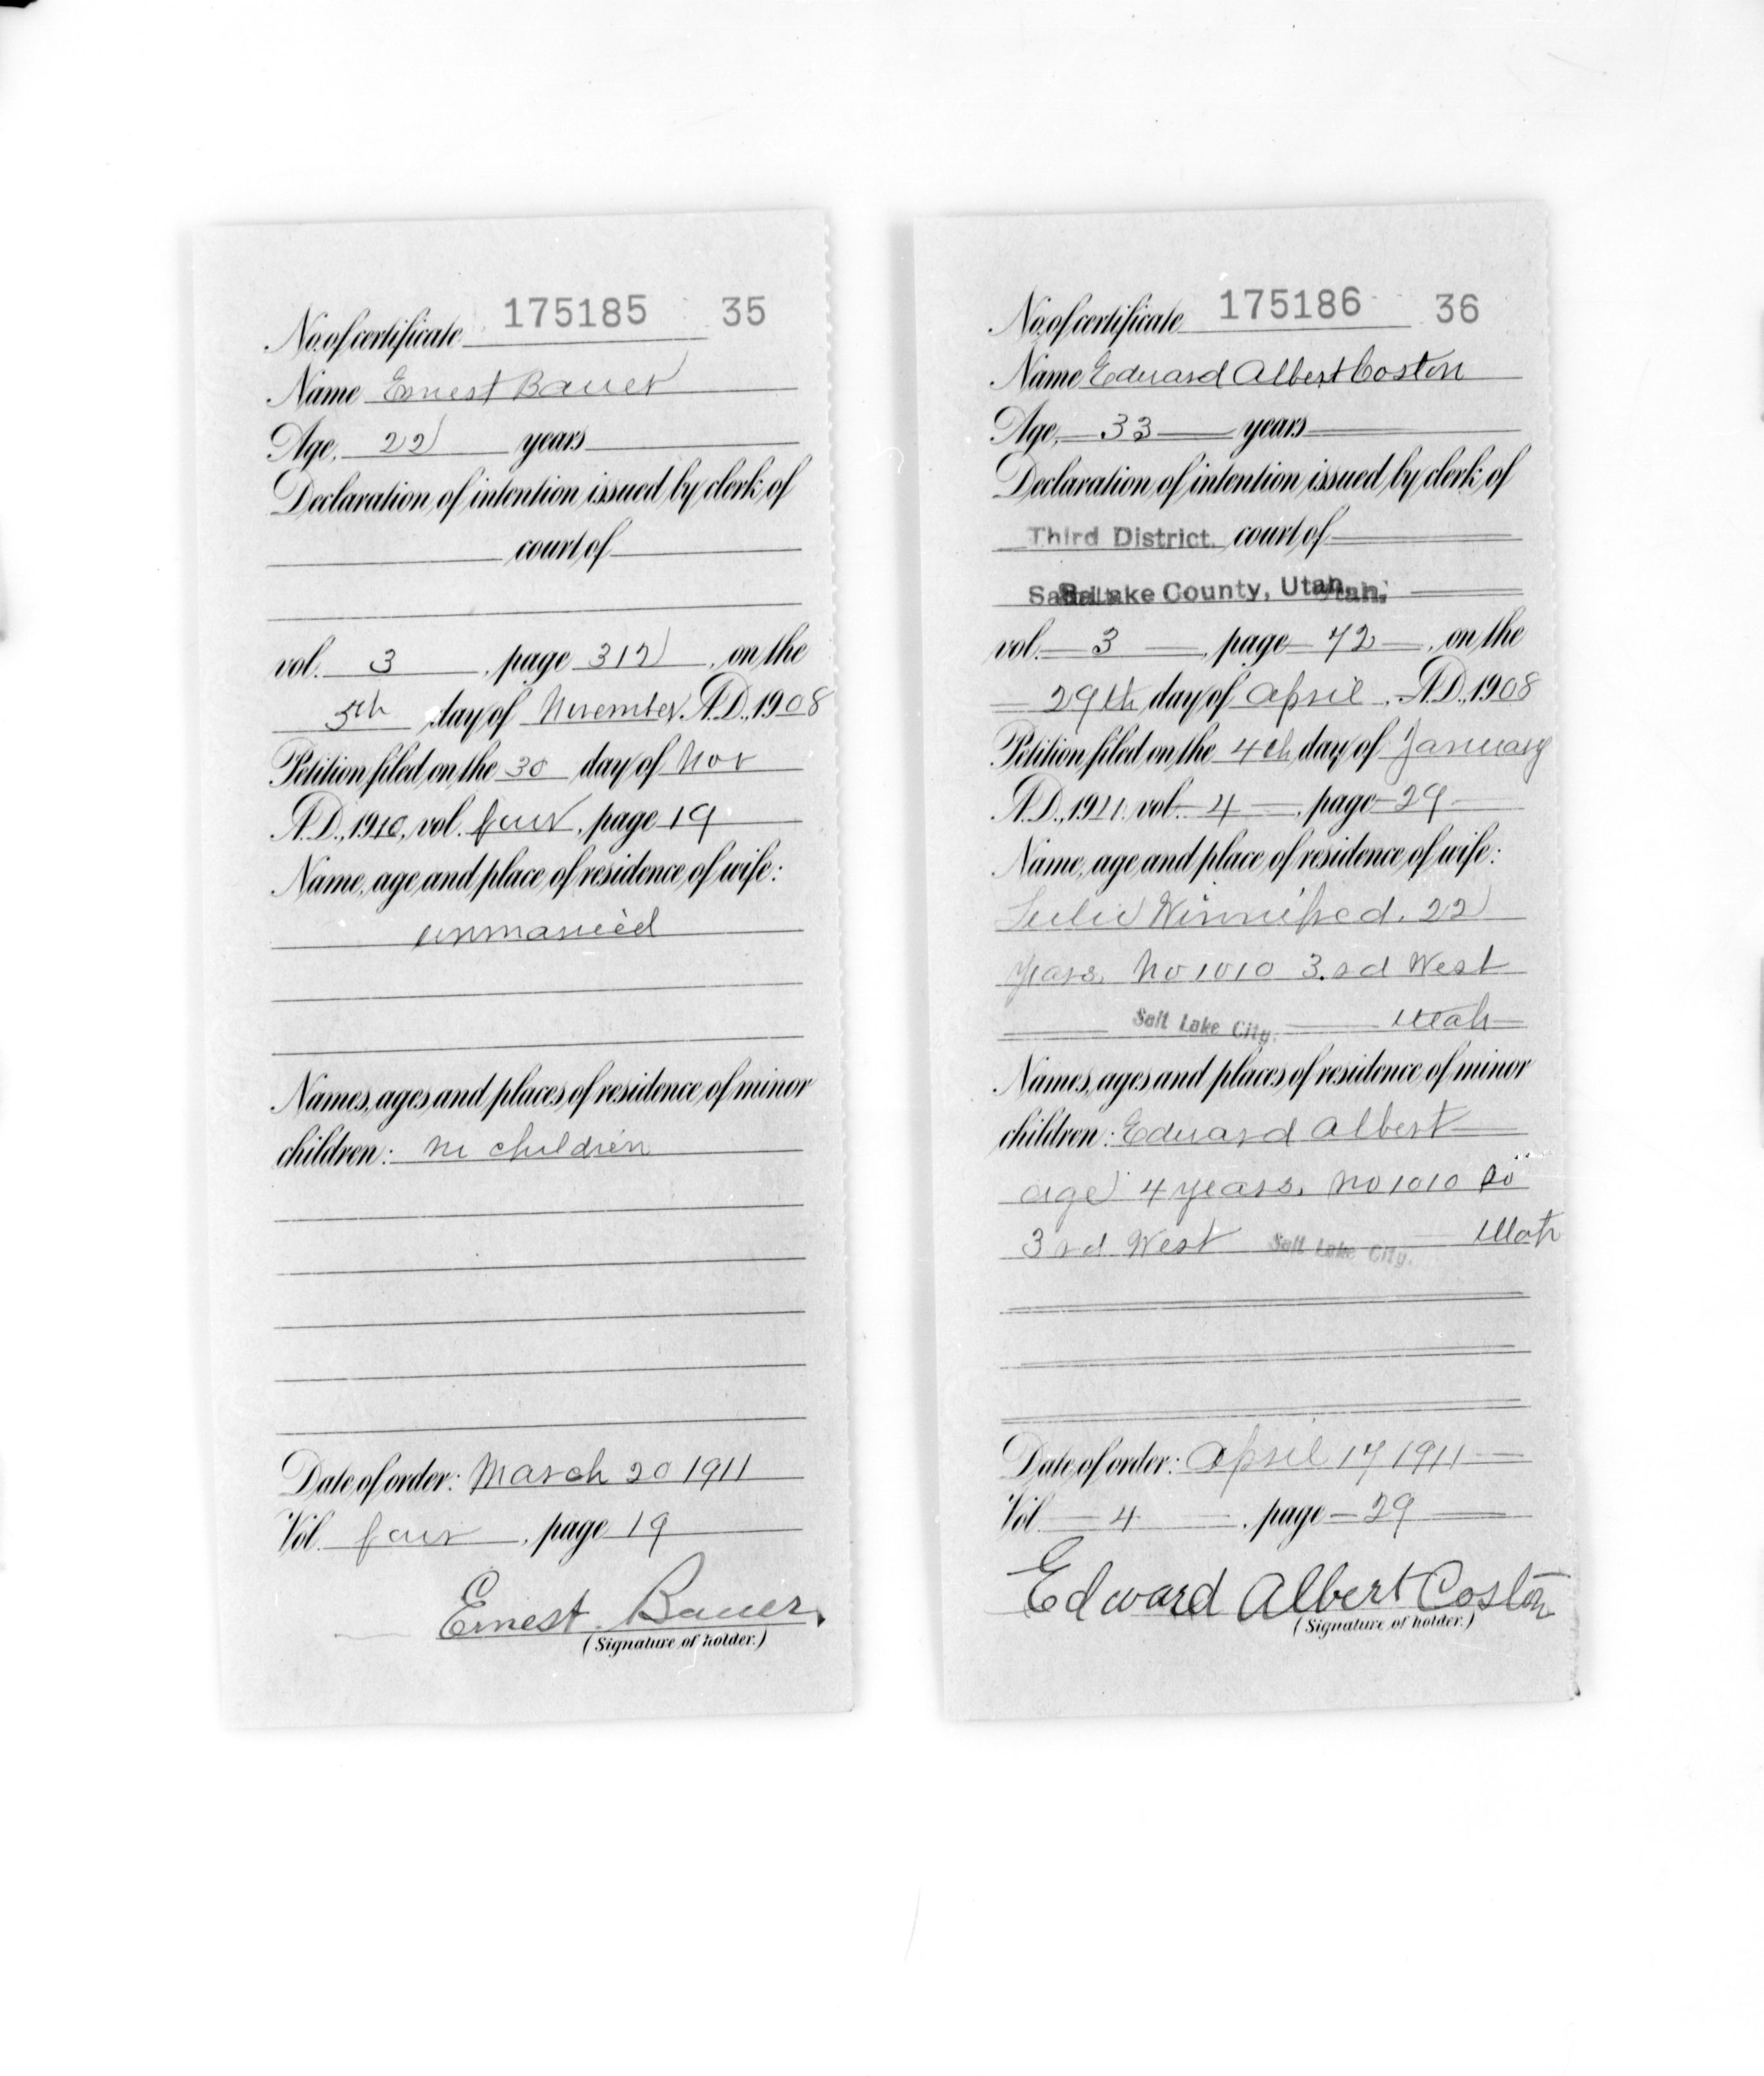 No. of certificate 175185 35
Name Ernest Bauer
Age, 22 years
Declaration of intention issued by clerk of
court of
vol. 3, page 312, on the
5th day of November, A.D., 1908
Petition filed on the 30 day of Nov
A.D., 1910, vol. four, page 19
Name, age and place of residence of wife:
unmarried
Names, ages and places of residence of minor
children: no children
Date of order: March 20 1911
Vol. four, page 19
Ernest Bauer.
(Signature of holder.)
No. of certificate 175186 36
Name Edward Albert Coston
Age, 33 years
Declaration of intention issued by clerk of
Third District. court of
Salt Lake County, Utah.
vol. 3, page 72, on the
29th day of April, A.D., 1908
Petition filed on the 4th day of January
A.D., 1911, vol. 4, page 29
Name, age and place of residence of wife:
Winnifred. 22
years. No 1010 3rd West
Salt Lake City. Utah
Names, ages and places of residence of minor
children: Edward Albert
age 4 years. No 1010 So
3rd West Salt Lake City. Utah
Date of order: April 17 1911
Vol. 4, page 29
Edward Albert Coston
(Signature of holder.)